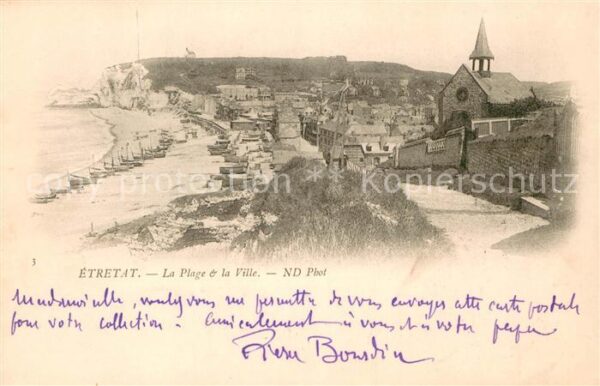 copyright protection Kopierschutz
3
ÉTRETAT. — La Plage & la Ville. — ND Phot
Mademoiselle, voulez vous me permettre de vous envoyer cette carte postale
pour votre collection. Amicalement à vous et à votre
Pierre Bourdin